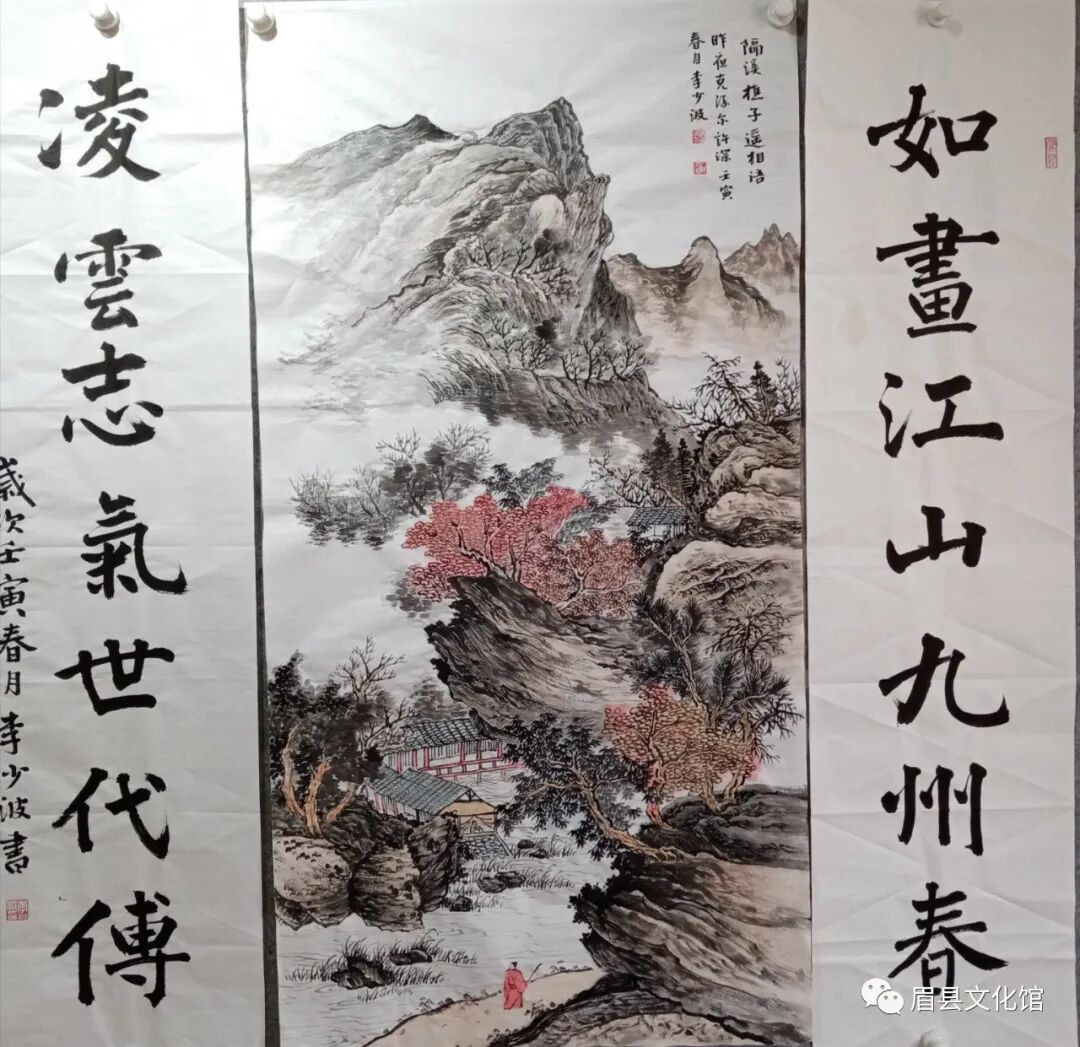 如畫江山九州春
隔溪樵子遥相语
昨夜克添尔许深 壬寅
春月 李少波
凌雲志氣世代傳
歲次壬寅春月 李少波書
眉县文化馆